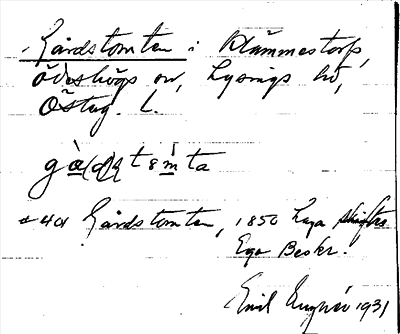 Gårdstomten i Klämmestorp,
Ödeshögs sn, Lysings hd,
Östug. L.
gå(d)stomta
a 401 Gårdstomten, 1850 Laga skifte
Ego Beskr.
Emil 1931